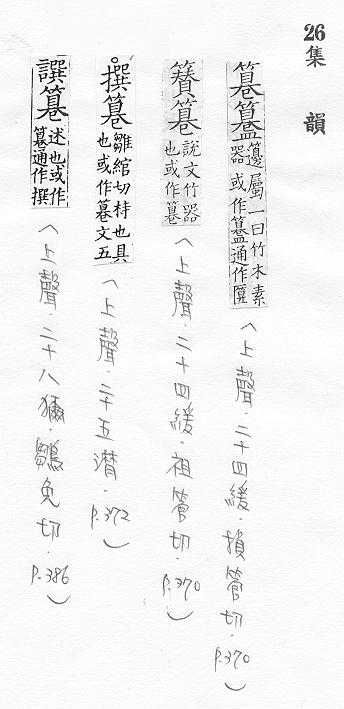 26
集韻
篹䉵籩屬一曰竹木素器或作䉵通作匴
(上聲.二十四緩.損管切.P.370)
籫篹說文竹器也或作篹
(上聲.二十四緩.祖管切.P.370)
撰篹雛綰切持也具也或作篹文五
(上聲.二十五潸.P.372)
譔篹述也或作篹通作撰
(上聲.二十八獮.鶵免切.P.386)